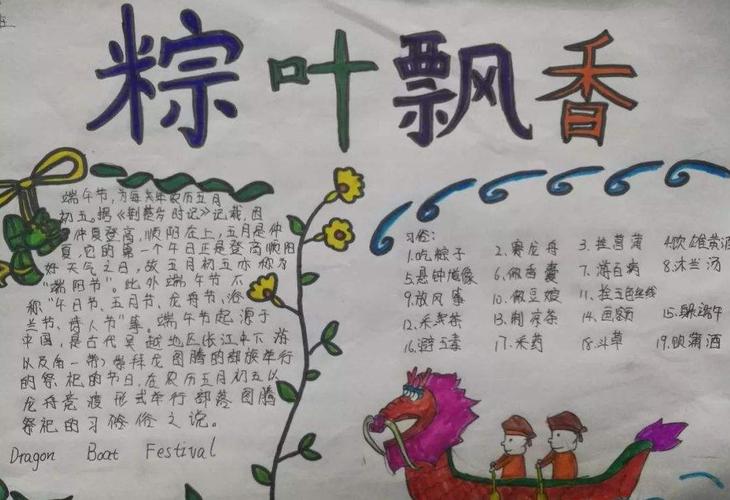 粽叶飘香
端午节，为每年农历五月
初五。据《荆楚岁时记》记载，因
仲夏登高，顺阳在上，五月是仲
夏，它的第一个午日正是登高顺阳
好天气之日，故五月初五亦称为
“端阳节”。此外端午节还
称“午日节、五月节、龙舟节、浴
兰节、诗人节”等。端午节起源于
中国，是古代吴越地区（长江中下游
以及南一带）崇拜龙图腾的部族举行
的祭祀的节日，在农历五月初五以
龙舟竞渡形式举行部落图腾
祭祀的习俗之说。
Dragon Boat Festival
习俗：
1.吃粽子 2.赛龙舟 3.挂菖蒲 4.饮雄黄酒
5.悬钟馗像 6.做香囊 7.游百病 8.沐兰汤
9.放风筝 10.做豆娘 11.拴五色丝线
12.采茶 13.制凉茶 14.画额 15.躲端午
16.避五毒 17.采药 18.斗草 19.饮蒲酒